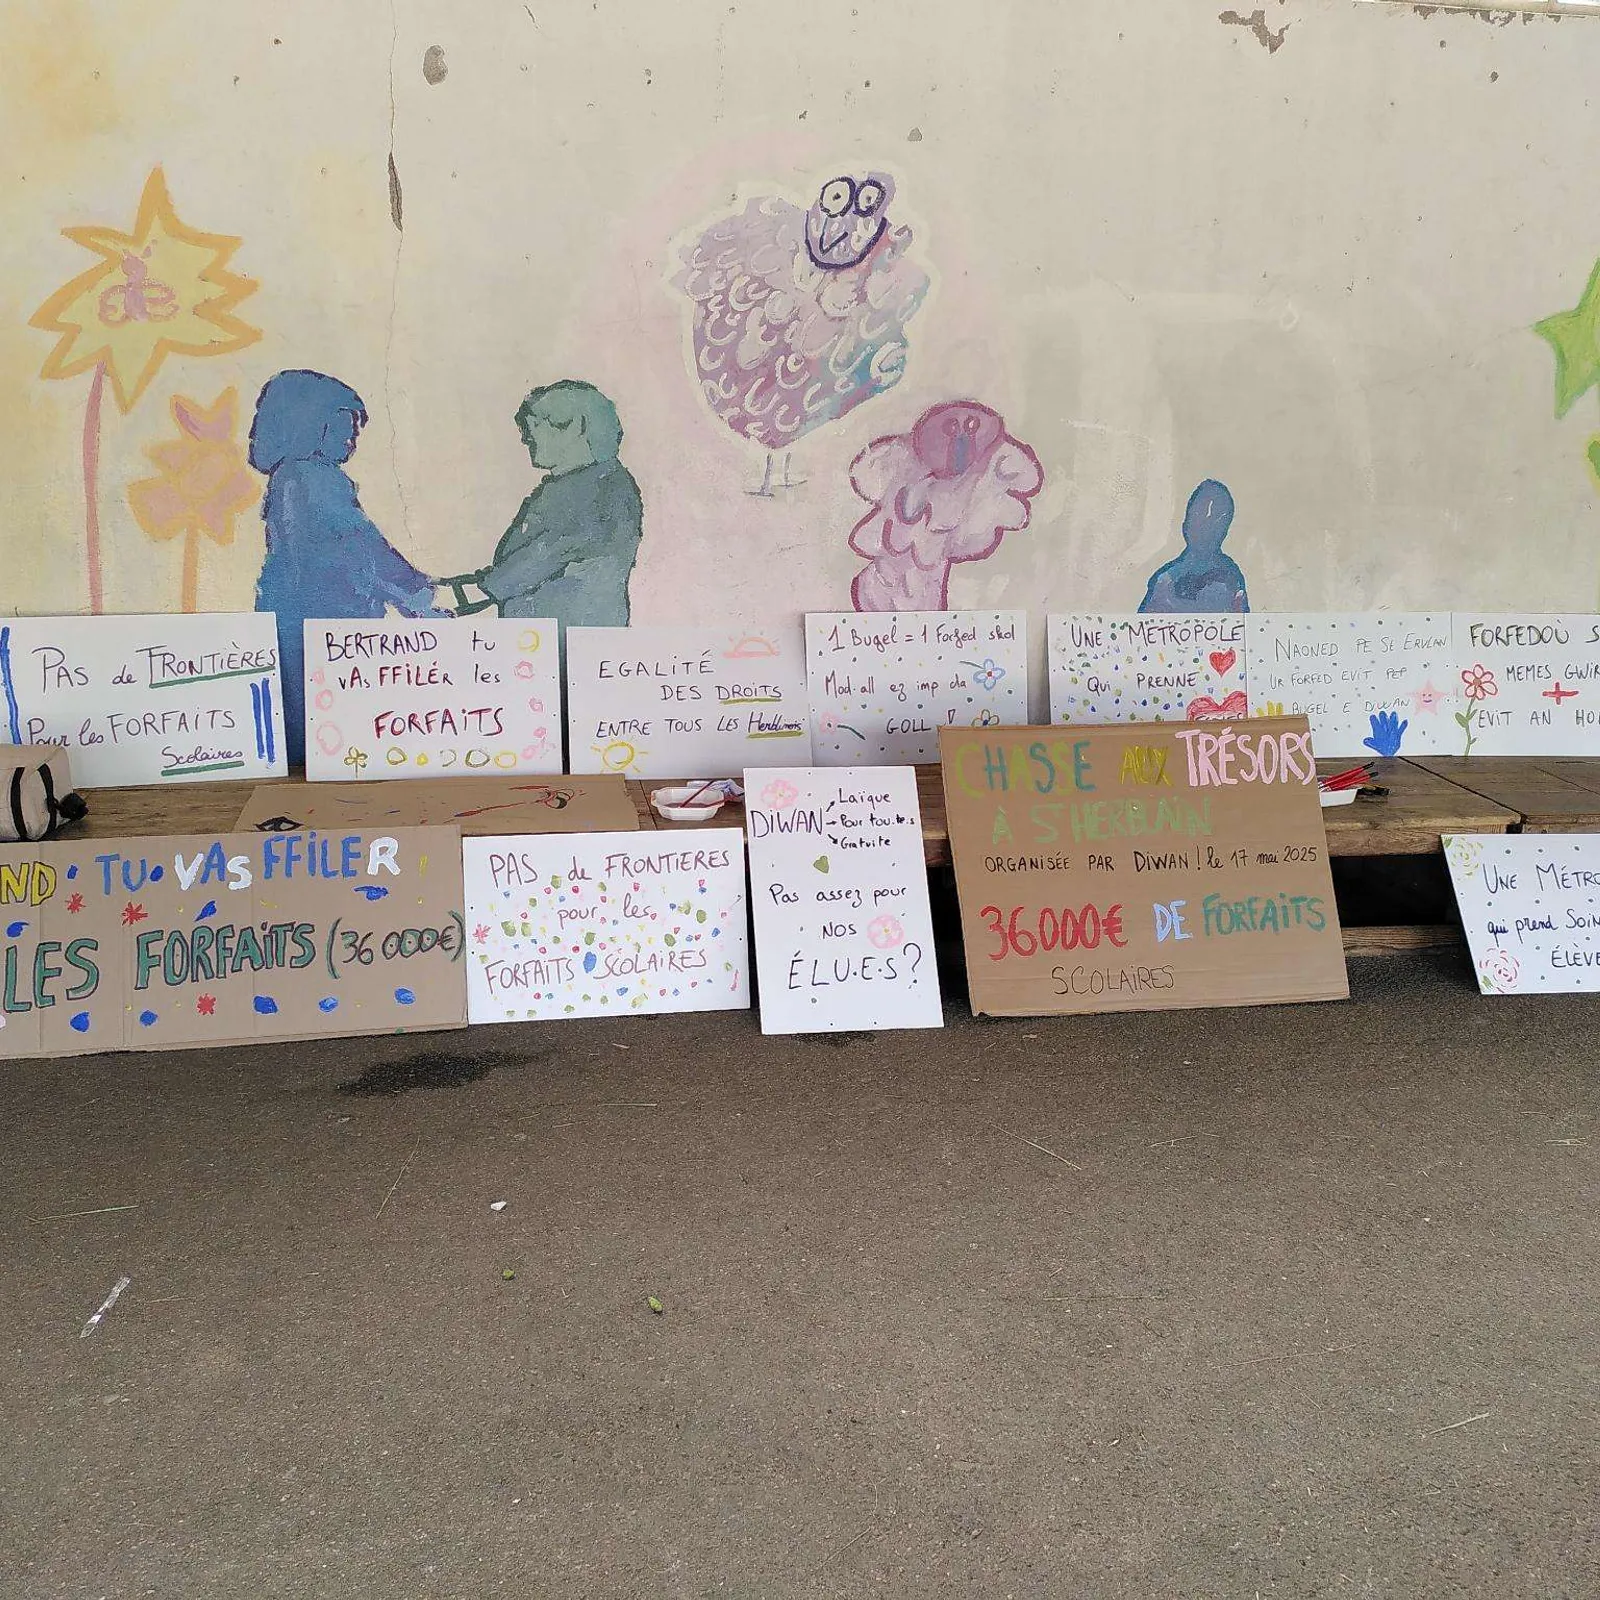 PAS de FRONTIÈRES
Pour les FORFAITS
Scolaires
BERTRAND tu
VAS FFILÉR les
FORFAITS
EGALITÉ
DES DROITS
ENTRE TOUS LES Herblinois
1 Bugel = 1 Forfed skol
Mad. all ez imp da
GOLL !
UNE MÉTROPOLE
QUI PRENNE
NAONED PE St ERVLAN
UR FORFED EVIT PEP
BUGEL E DIWAN
FORFEDOÙ S
MEMES GWIR
EVIT AN HO
ND TU VAS FFILER
LES FORFAITS (36 000€)
PAS de FRONTIERES
pour les
FORFAITS SCOLAIRES
DIWAN
Laïque
Pour tou.te.s
Gratuite
Pas assez pour
NOS
ÉLU.E.S ?
CHASSE AUX TRÉSORS
À ST HERBLAIN
ORGANISÉE PAR DIWAN ! le 17 mai 2025
36000€ DE FORFAITS
SCOLAIRES
UNE MÉTRO
qui prend SOIN
ÉLÈVE